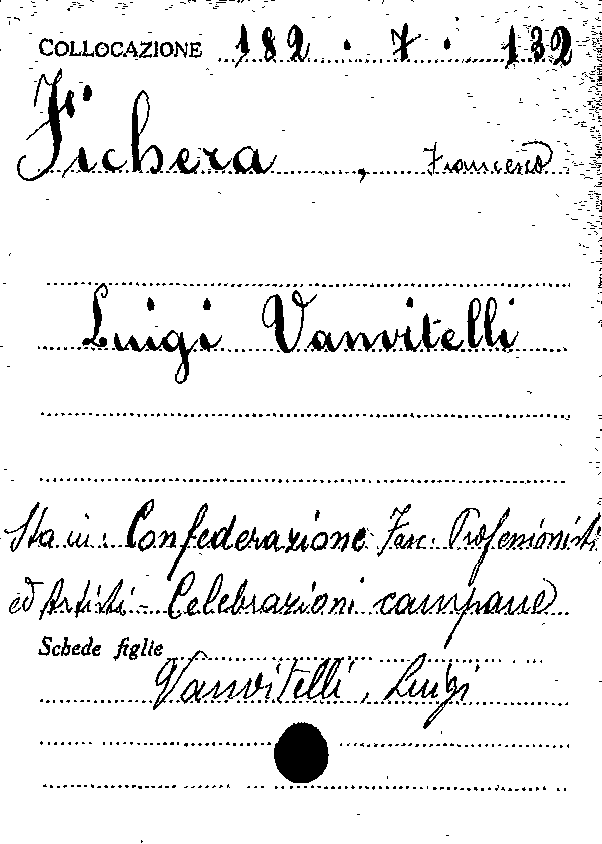 COLLOCAZIONE 182 . 7 . 132
Fichera , Francesco
Luigi Vanvitelli
Sta in: Confederazione Fasc. Professionisti
ed Artisti - Celebrazioni campane
Schede figlie
Vanvitelli, Luigi